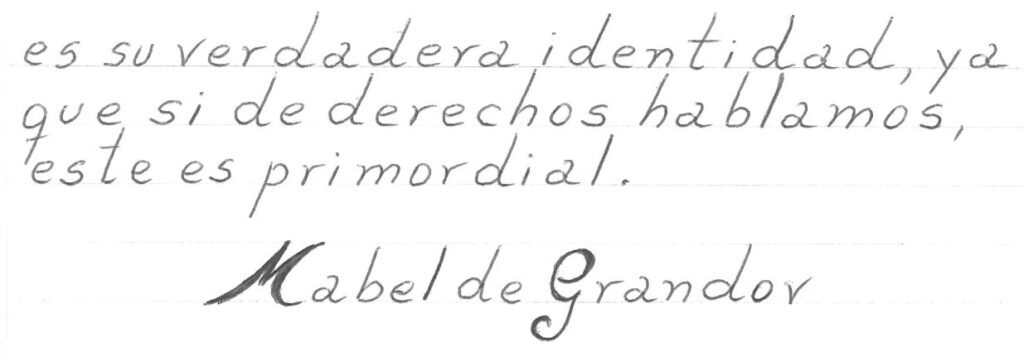 es su verdadera identidad, ya
que si de derechos hablamos,
este es primordial.
Mabel de Grandov